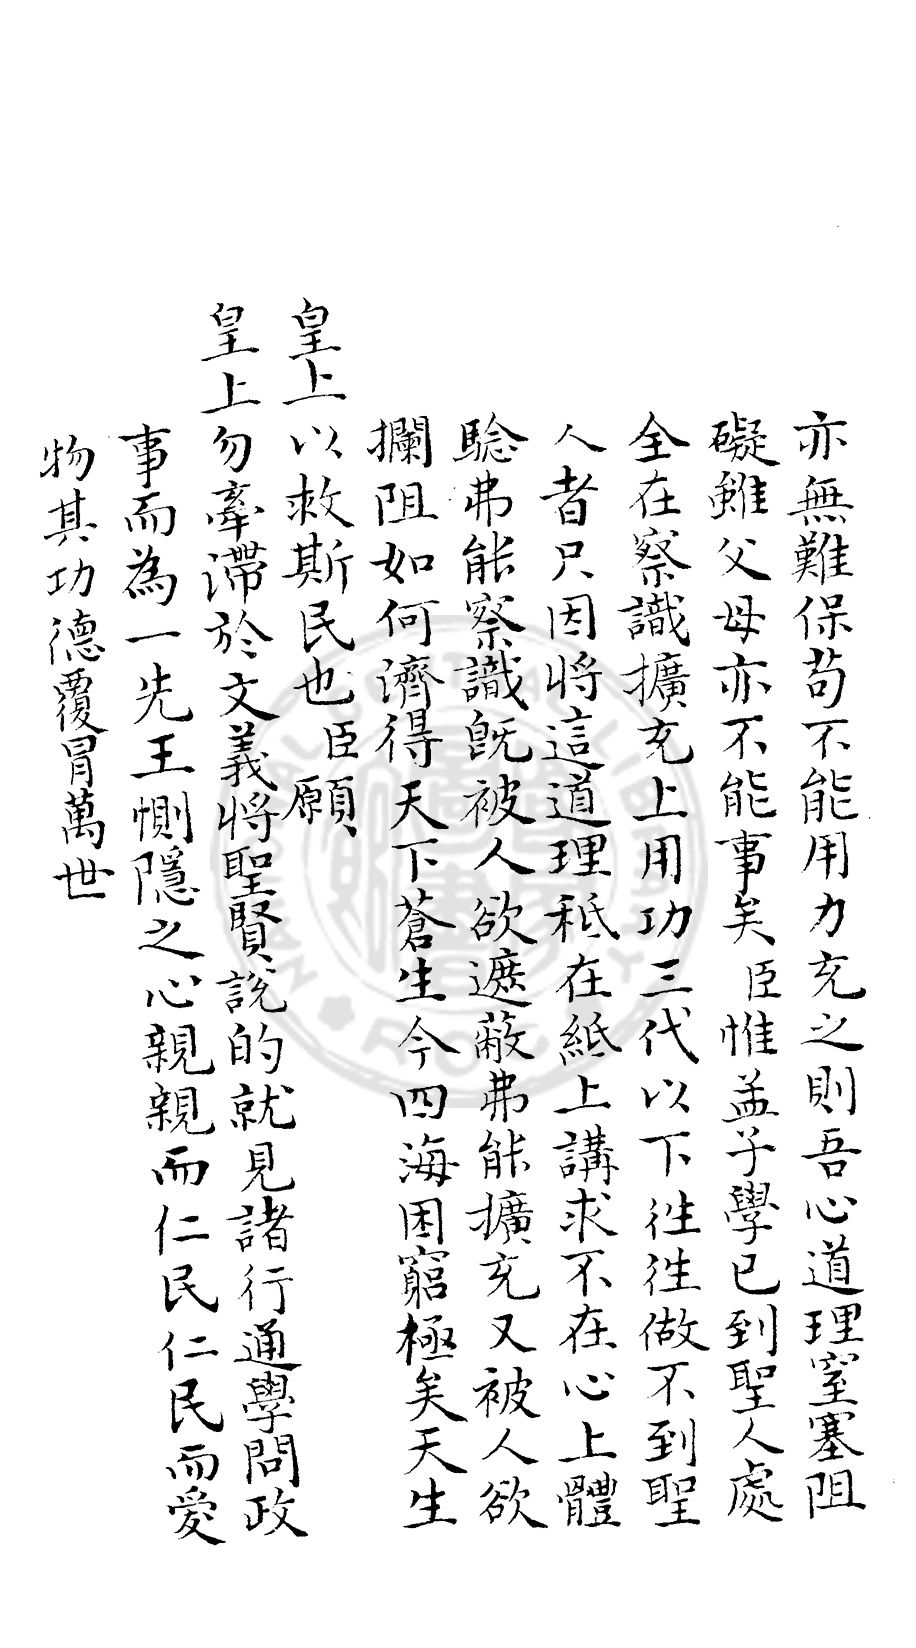 亦無難保苟不能用力充之則吾心道理窒塞阻
礙雖父母亦不能事矣臣惟孟子學已到聖人處
全在察識擴充上用功三代以下徃徃做不到聖
人者只因將這道理秪在紙上講求不在心上體
騐弗能察識既被人欲遮蔽弗能擴充又被人欲
攔阻如何濟得天下蒼生今四海困窮極矣天生
皇上以救斯民也臣願
皇上勿牽滯於文義將聖賢說的就見諸行通學問政
事而為一先王惻隱之心親親而仁民仁民而愛
物其功德覆冒萬世